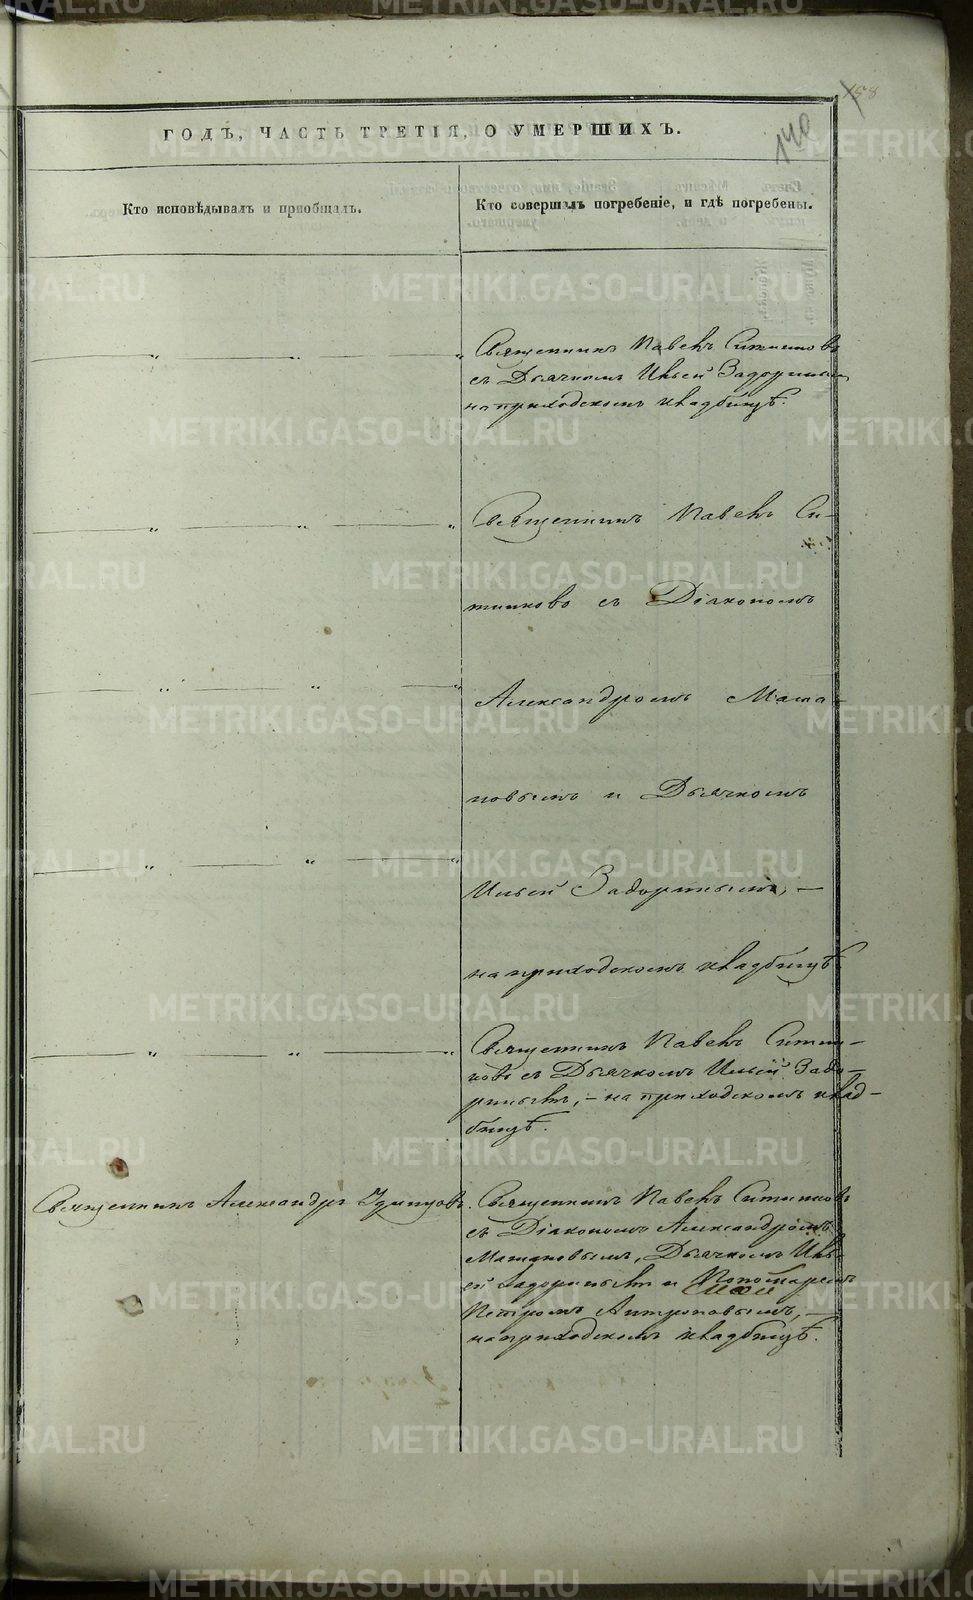 158
140
ГОДЪ, ЧАСТЬ ТРЕТІЯ, О УМЕРШИХЪ.
Кто исповѣдывалъ и пріобщалъ.
Кто совершалъ погребеніе, и гдѣ погребены.
Священникъ Павелъ Ситниковъ
съ Дьячкомъ Ильей Задоринымъ
на приходскомъ кладбищѣ.
Священникъ Павелъ Си-
тниковъ съ Діакономъ
Александромъ
и Дьячкомъ
Ильей Задоринымъ, —
на приходскомъ кладбищѣ.
Священникъ Павелъ Ситни-
ковъ съ Дьячкомъ Ильей Задо-
ринымъ, — на приходскомъ клад-
бищѣ.
Священникъ Александръ
Священникъ Павелъ Ситниковъ
съ Діакономъ Александромъ
Дьячкомъ Иль-
ей Задоринымъ и Пономаремъ
Петромъ Антроповымъ, —
на приходскомъ кладбищѣ.
METRIKI.GASO-URAL.RU